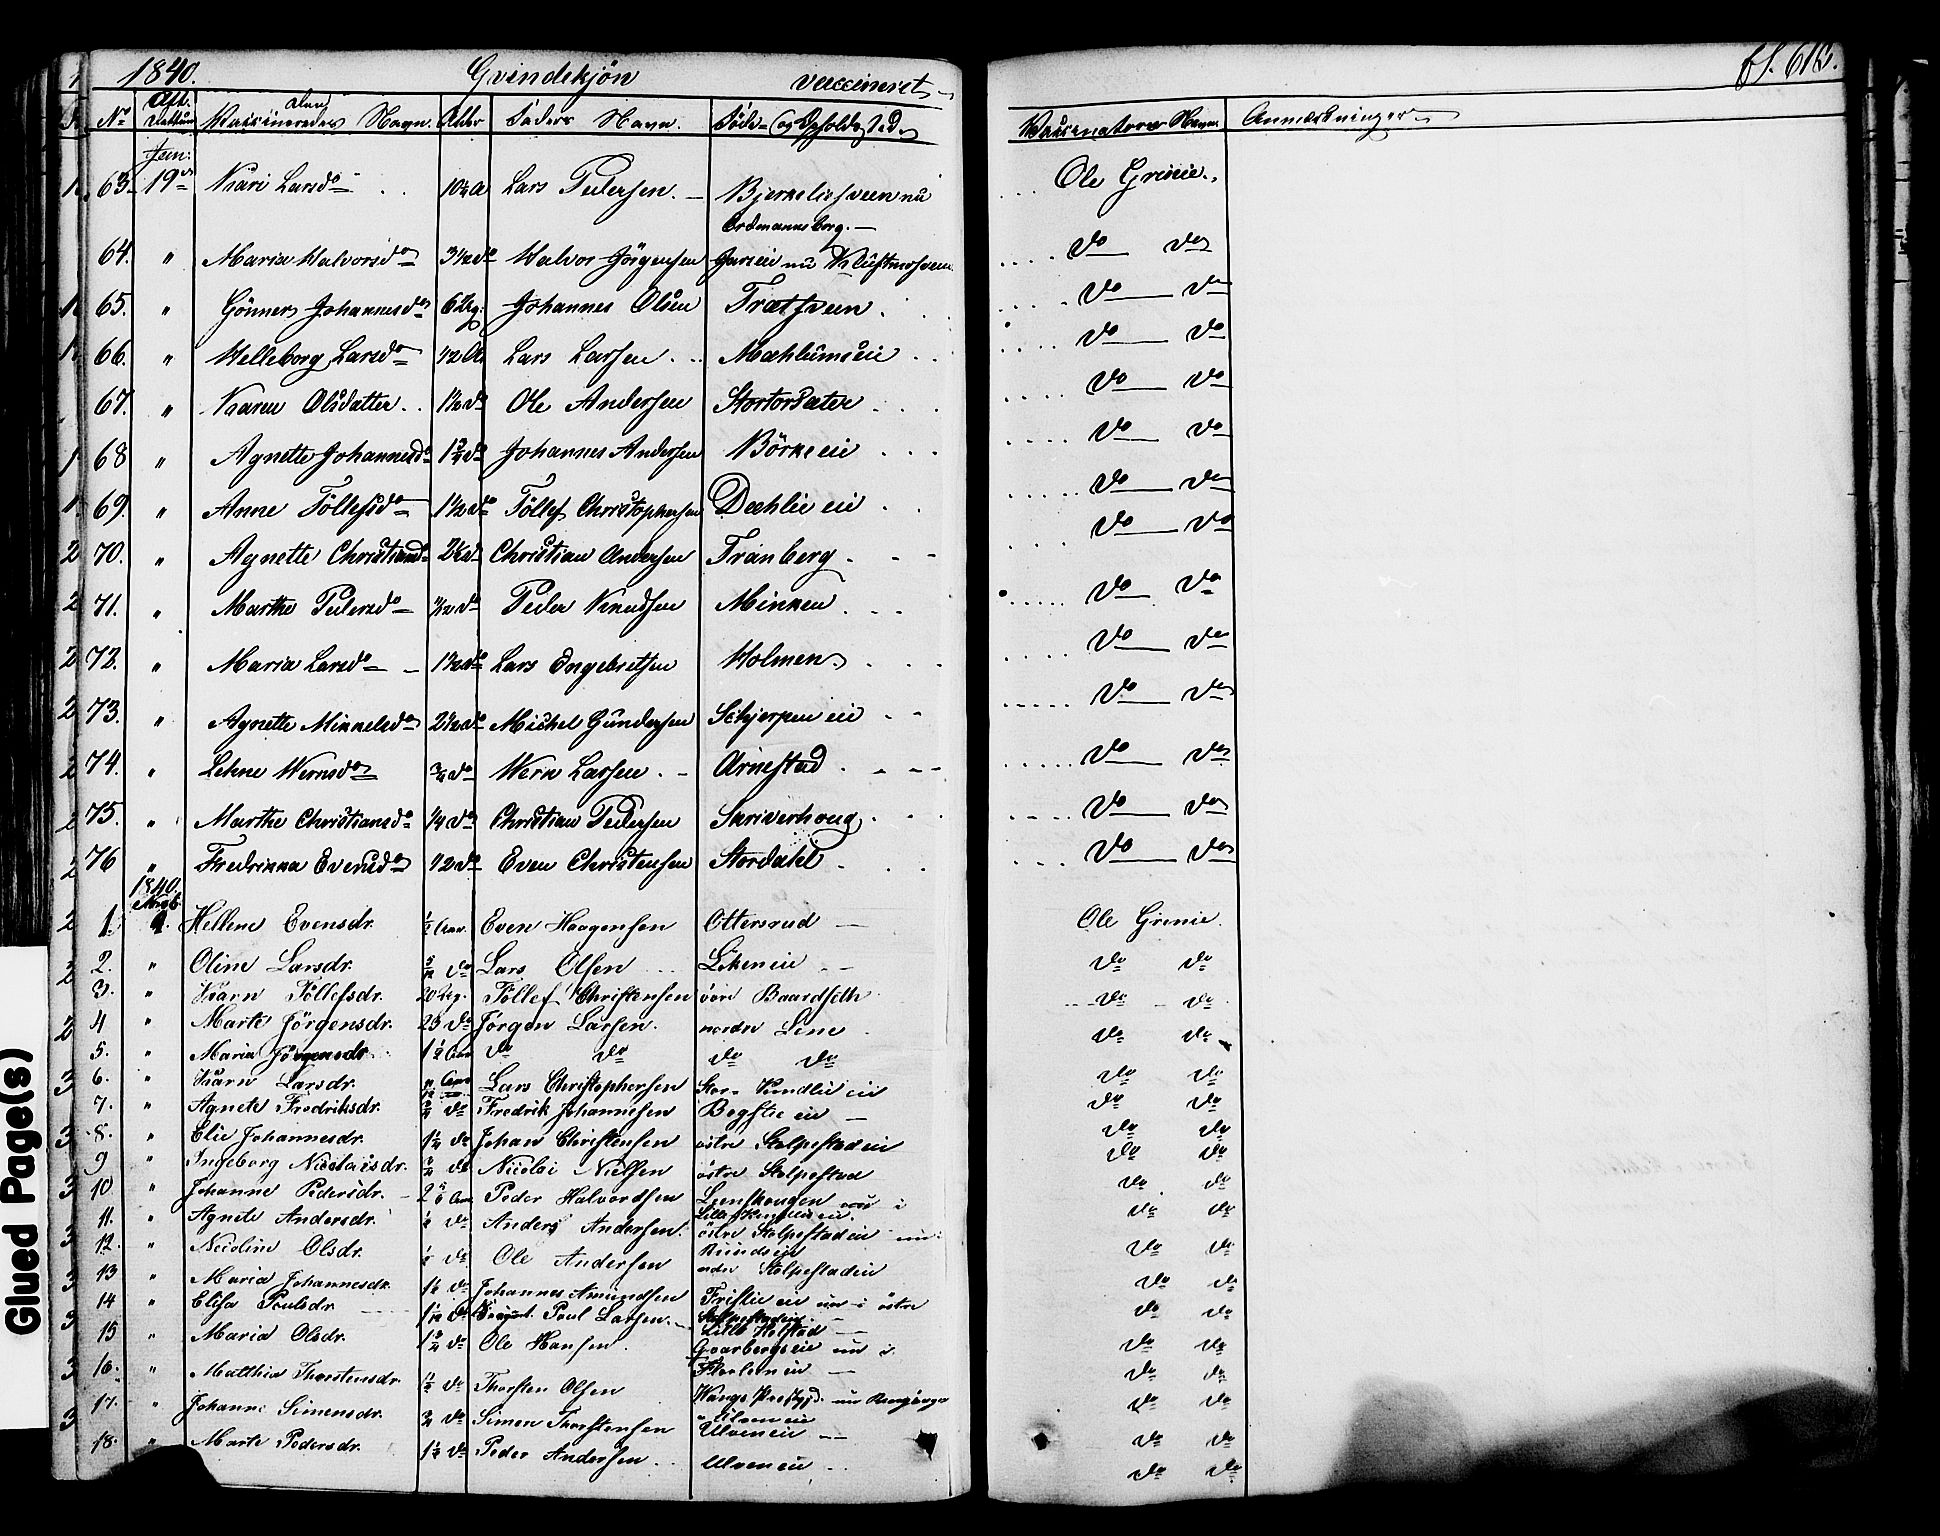 1840. Qvindekjön vaccineret fl. 612.
No Datum Vaccineredes Navn. Alder Faders Navn. Föde- og Opholdssted Vaccinateurs Navn Anmærkninger
63. 19de Kari Larsdo Lars Pedersen. Bjerkeliesveen nu Ole Grinie.
Ordmannsberg.
64. " Maria Halvorsdo 3 1/2 do Halvor Jörgensen do do
65. " Gönner Johannesdo 6 Ug. Johannes Olsen Trætsveen do do
66. " Helleborg Larsdo 1/2 A Lars Larsen Mæhlumseie do do
67. " Karen Olsdatter 1 1/2 do Ole Andersen Stortorsæter do do
68 " Agnette Johannesdo 1 3/4 do Johannes Andersen Börkeeie do do
69. " Anne Töllefsdo 1 1/2 do Töllef Christophersen Dæhlie eie do do
70. " Agnette Christiansdo Christian Andersen Tranberg do do
71. " Marthe Pedersdo do Peder Knudsen Minken do do
72. " Maria Larsdo do Lars Engebretsen Holmen do do
73. " Agnette Mikkelsdo 2 1/2 do Michel Gundersen Schjerpen eie do do
74. " Lehne Wernsdo 3/4 do Wern Larsen Arnestad do do
75. " Marthe Christiansdo 1/4 do Christian Pedersen Skriverhoug do do
76 " Fredrikka Evensdo 1/2 do Even Christensen Stordahl do do
1840.
1. Hellene Evensdr. 1/2 Aar. Even Haagensen Ottersrud Ole Grinie.
2. " Oline Larsdr. do Lars Olsen Likeneie do do
3. " Karn Töllefsdr. 20 Ug. Töllef Christensen övre Baardseth do do
4 " Marte Jörgensdr. 25 do Jörgen Larsen. nordre Lene do do
5. " Maria Jörgensdr 1 1/2 Aar do do do do do do
6. " Karn Larsdr. Aar Lars Christophersen Stor-Kundlie eie do do
7. " Agnete Fredriksdr. 3/4 do Fredrik Johannesen Begstie eie do do
8. " Elie Johannesdr. do Johan Christensen östre Stolpestadeie do do
9 " Ingeborg Nicolaisdr. 3/4 do Nicolai Nielsen östre Stolpestad do do
10 " Johanne Pedersdr. Aar Peder Halvordsen Lunshougen nu i do do
Lille-Kundlieeie.
11. " Agnete Andersdr. do Anders Andersen. östre Stolpestadeie nu do do
12. " Nicoline Olsdr. do Ole Andersen Stolpestadeie do do
13 " Maria Johannesdr. do Johannes Amundsen Tristie eie nu i östre do do
Stolpestadeie
14 " Elisa Poulsdr. do Poul Larsen. Lille Holstad do do
15 " Maria Olsdr. do Ole Hansen. Qvarbergseie nu i do do
16. " Matthia Thorstensdr. do Thorsten Olsen do do
17. " Johanne Simensdr. 3/4 do Simen Thorstensen Ulveneie do do
18. " Marte Pedersdr. do Peder Andersen Ulveneie do do
Glued Page(s)